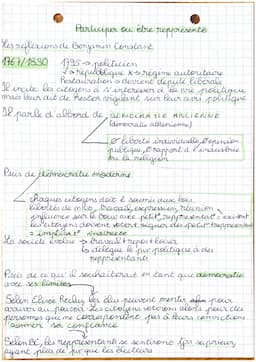 Participer ou être représenté
Les réflexions de Benjamin Constant
1767/1830 1795 → politicien
↳ république ≠ régime autoritaire
Restauration → devient député libérale
Il incite les citoyens à s'intéresser à la vie politique
mais leur dit de rester vigilant sur leur avis politique
Il parle d'abord de DÉMOCRATIE ANCIENNE
(démocratie athénienne)
∅ liberté individuelle, ∅ opinion
publique, ∅ rapport à l'industrie
ou la religion
Puis de démocratie moderne
chaque citoyens doit se soumis aux lois
libertés de mvt, travail, expression, réunion
influence sur le gouv avec
les citoyens doivent voter
La société évolue → travail + repos + loisir
↳ délègue le pvr politique à des
représentants
Puis de ce qu'il souhaiterait en tant que démocratie
avec ses limites
Selon Elisée Reclus les élus peuvent mentir pour
arriver au pouvoir. Les citoyens voteront alors pour des
personnes qui ne correspondent pas à leurs convictions
donner sa confiance
Selon BC, les représentants se sentiront supérieurs
ayant plus de pvr que les électeurs